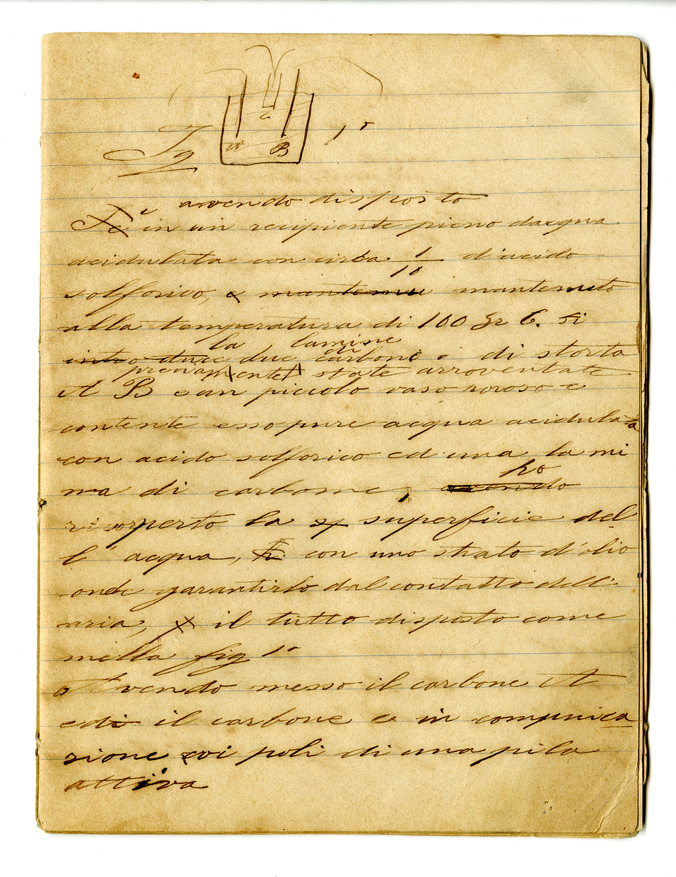 c
A B
Fig 1ª
avendo disposto
in un recipiente pieno dacqua
acidulata con cirba 1/10 d'acido
solforico, e mantenuu mantenuto
alla temperatura di 100 gr C. si
la lamine
due carbone e di storta
di
previamente state arroventate
A B e un piccolo vaso poroso c
contente esso pure acqua acidulata
con acido solforico ed una lami
na di carbone, avendo ho
ricoperto la superficie del
l'acqua, con uno strato d'olio
onde garantirlo dal contatto dell'
aria, il tutto disposto come
nella fig 1ª
Avendo messo il carbone A
ed il carbone c in comunica
zione coi poli di una pila
attiva